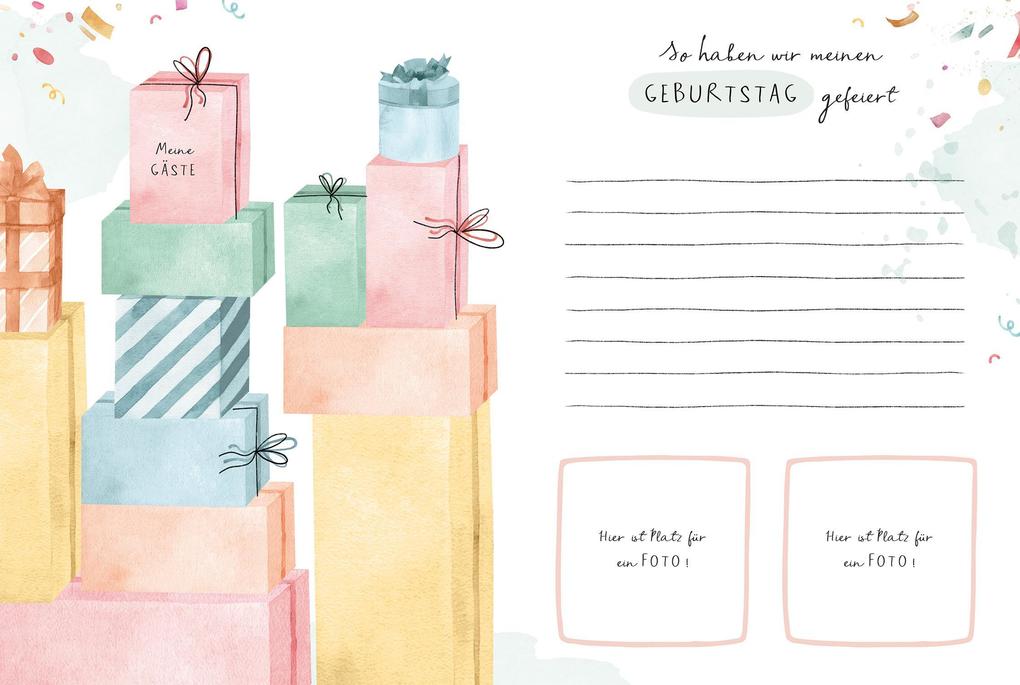 Meine
GÄSTE
So haben wir meinen
GEBURTSTAG gefeiert
Hier ist Platz für
ein FOTO!
Hier ist Platz für
ein FOTO!